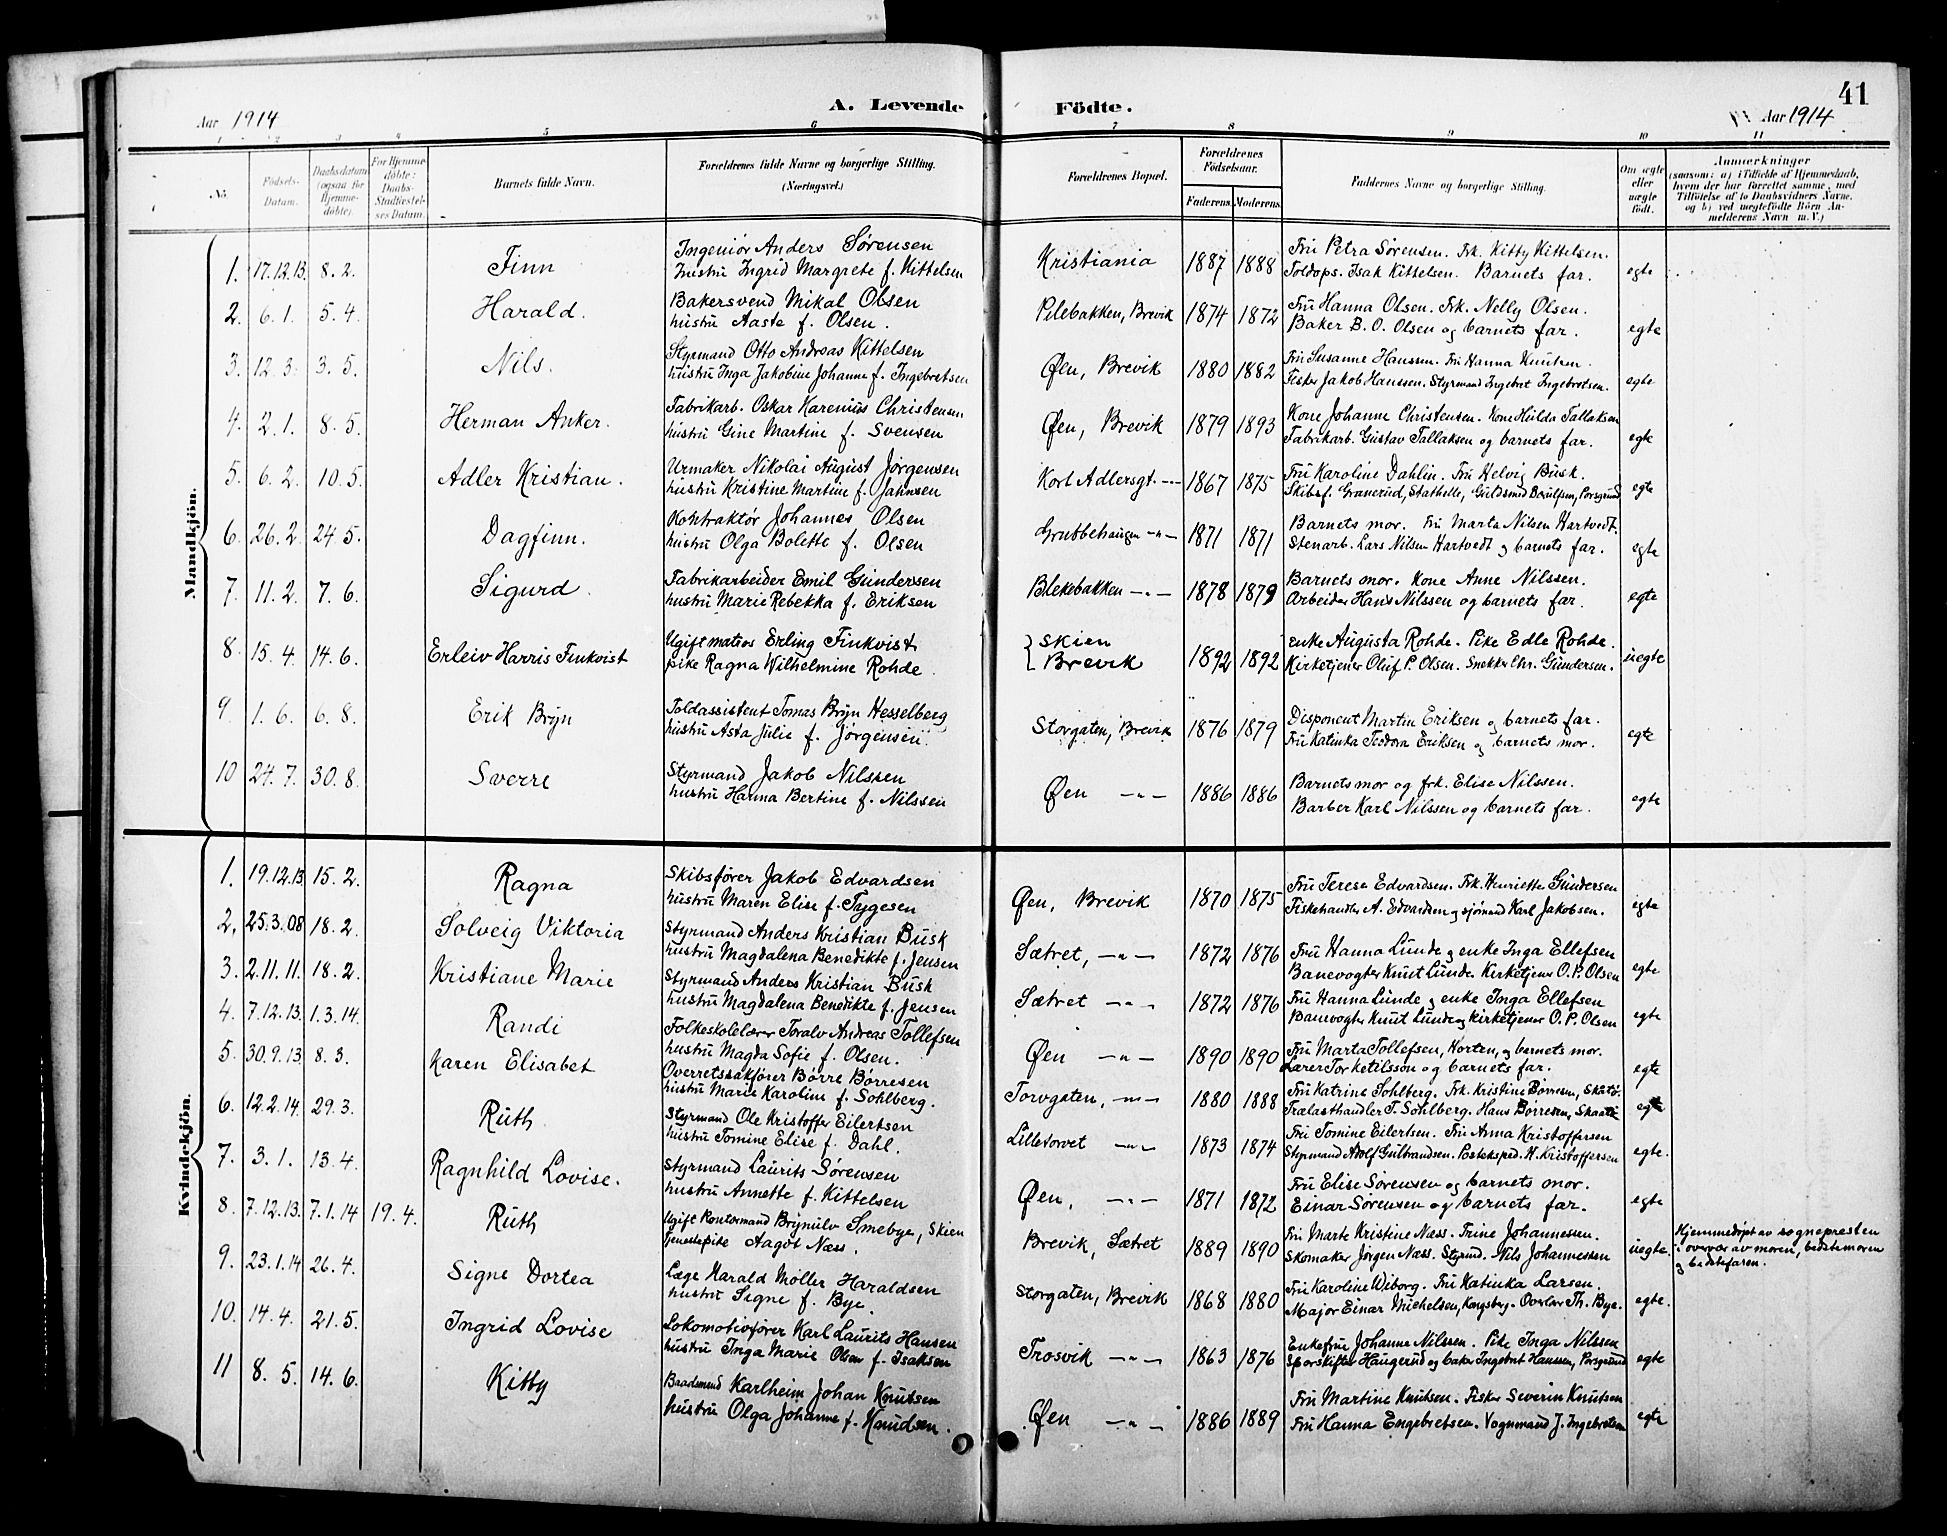 41
A. Levende Födte.
Aar 1914
Aar 1914
1 2 3 4 5 6 7 8 9 10 11
No.
Födsels-Datum.
Daabsdatum (ogsaa for Hjemme-döbte).
For Hjemme-döbte: Daabs-Stadfæstel-ses Datum.
Barnets fulde Navn.
Forældrenes fulde Navne og borgerlige Stilling. (Næringsvei.)
Forældrenes Bopæl.
Forældrenes Födselsaar.
Faderens. Moderens.
Faddernes Navne og borgerlige Stilling.
Om ægte eller uægte födt.
Anmærkninger
(saasom: a) i Tilfælde af Hjemmedaab,
hvem der har forrettet samme, med
Tilföielse af to Daabsvidners Navne,
og b) ved uægtefödte Börn An-
melderens Navn m. V.)
Mandkjön.
1. 17.12.13. 8.2. Finn
Ingeniør Anders Sørensen
hustru Ingrid Margrete f. Kittelsen
Kristiania 1887 1888
Fru Petra Sørensen. Frk. Kitty Kittelsen.
Toldops. Isak Kittelsen. Barnets far. egte
2. 6.1. 5.4. Harald.
Bakersvend Mikal Olsen
hustru Aaste f. Olsen.
Pilebakken, Brevik 1874 1872
Fru Hanna Olsen. Frk. Nelly Olsen.
Baker B. O. Olsen og barnets far. egte
3. 12.3. 3.5. Nils.
Styrmand Otto Andreas Kittelsen
hustru Inga Jakobine Johanne f. Ingebretsen
Øen, Brevik 1880 1882
Fru Susanne Hanssen. Fru Hanna Knutsen.
Fisker Jakob Hanssen. Styrmand Ingebret Ingebretsen. egte
4. 2.1. 8.5. Herman Anker.
Fabrikarb. Oskar Karenius Christensen
hustru Gine Martine f. Svensen
Øen, Brevik 1879 1893
Kone Johanne Christensen. Kone Hulda Tallaksen
Fabrikarb. Gustav Tallaksen og barnets far. egte
5. 6.2. 10.5. Adler Kristian.
Urmaker Nikolai August Jørgensen
hustru Kristine Martine f. Jahnsen
Kort Adlersgt. -"- 1867 1875
Fru Karoline Dahlin. Fru Helvig Busk.
Skibsf. Granerud, Stathelle, Guldsmed Beulfsen, Porsgrund egte
6. 26.2. 24.5. Dagfinn.
Kontraktør Johannes Olsen
hustru Olga Bolette f. Olsen
Grubbehaugen -"- 1871 1871
Barnets mor. Fru Marta Nilsen Hartvedt.
Stenarb. Lars Nilsen Hartvedt og barnets far. egte
7. 11.2. 7.6. Sigurd.
Fabrikarbeider Emil Gundersen
hustru Marie Rebekka f. Eriksen
Blekebakken -"- 1878 1879
Barnets mor. Kone Anne Nilssen.
Arbeider Hans Nilssen og barnets far. egte
8. 15.4. 14.6. Erleiv Harris Finkvist
Ugift matros Erling Finkvist
pike Ragna Wilhelmine Rohde.
Skien
Brevik 1892 1892
Enke Augusta Rohde. Pike Edle Rohde.
Kirketjener Oluf P. Olsen. Snekker Chr. Gundersen. uegte
9. 1.6. 6.8. Erik Brÿn
Toldassistent Tomas Brÿn Hesselberg
hustru Asta Julie f. Jørgensen
Storgaten, Brevik 1876 1879
Disponent Martin Eriksen og barnets far.
Fru Katinka Teodora Eriksen og barnets mor. egte
10 24.7. 30.8. Sverre
Styrmand Jakob Nilssen
hustru Hanna Bertine f. Nilssen
Øen -"- 1886 1886
Barnets mor og frk. Elise Nilssen.
Barber Karl Nilssen og barnets far. egte
Kvindekjön.
1. 19.12.13. 15.2. Ragna
Skibsfører Jakob Edvardsen
hustru Maren Elise f. Tygesen
Øen, Brevik 1870 1875
Fru Terese Edvardsen. Frk. Henriette Gundersen
Fiskehandler A. Edvardsen og sjømand Karl Jakobsen. egte
2. 25.3.08 18.2. Solveig Viktoria
Styrmand Anders Kristian Busk
hustru Magdalena Benedikte f. Jensen
Sætret, -"- 1872 1876
Fru Hanna Lunde og enke Inga Ellefsen
Banevogter Knut Lunde. Kirketjener O. P. Olsen egte
3. 2.11.11. 18.2. Kristiane Marie
Styrmand Anders Kristian Busk
hustru Magdalena Benedikte f. Jensen
Sætret -"- 1872 1876
Fru Hanna Lunde og enke Inga Ellefsen
Banevogter Knut Lunde og kirketjener O. P. Olsen egte
4. 7.12.13. 1.3.14. Randi
Folkeskolelærer Toralv Andreas Tollefsen
hustru Magda Sofie f. Olsen.
Øen -"- 1890 1890
Fru Marta Tollefsen, Horten, og barnets mor.
Lærer Tor Ketilsson og barnets far. egte
5. 30.9.13. 8.3. Karen Elisabet
Overretssakfører Børre Børresen
hustru Marie Karoline f. Sohlberg.
Torvgaten, -"- 1880 1888
Fru Katrine Sohlberg. Frk. Kristine Børresen, Skaatø.
Trælasthandler T. Sohlberg. Hans Børresen, Skaatø egte
6. 12.2.14. 29.3. Ruth
Styrmand Ole Kristoffer Eilertsen
hustru Tomine Elise f. Dahl.
Lilletorvet -"- 1873 1874
Fru Tomine Eilertsen. Fru Anna Kristoffersen
Styrmand Adolf Gulbrandsen. Postekspd. H. Kristoffersen egte.
7. 3.1. 13.4. Ragnhild Lovise.
Styrmand Laurits Sørensen
hustru Annette f. Kittelsen
Øen, -"- 1871 1872
Fru Elise Sørensen og barnets mor.
Einar Sørensen og barnets far. egte
8. 7.12.13. 7.1.14 19.4. Ruth
Ugift kontormand Brynulv Smebye, Skien
Tjenestepike Aagot Næss.
Brevik, Sætret 1889 1890
Fru Marte Kristine Næss. Trine Johannessen.
Skomaker Jørgen Næss. Styrmd. Nils Johannessen uegte.
Hjemmedøpt av sognepresten
i overvær av moren, bedstemoren
og bedstefaren.
9. 23.1.14 26.4. Signe Dortea
Læge Harald Møller Haraldsen
hustru Signe f. Bye.
Storgaten, Brevik 1868 1880
Fru Karoline Wiborg. Fru Katinka Larsen.
Major Einar Michelsen, Kongsberg. Overlær Th. Bye. egte.
10. 14.4. 21.5. Ingrid Lovise
Lokomotivfører Karl Laurits Hansen
hustru Inga Marie Olsen f. Isaksen
Trosvik -"- 1863 1876
Enkefru Johanne Nilssen. Pike Inga Nilssen
Sporskifter Haugerud og baker Ingebret Hanssen, Porsgrund egte
11 8.5. 14.6. Kitty
Baadsmand Karlheim Johan Knutsen
hustru Olga Johanne f. Knudsen.
Øen -"- 1886 1889
Fru Martine Knutsen. Fisker Severin Knutsen
Fru Hanna Engebretsen. Vognmand J. Ingebretsen egte